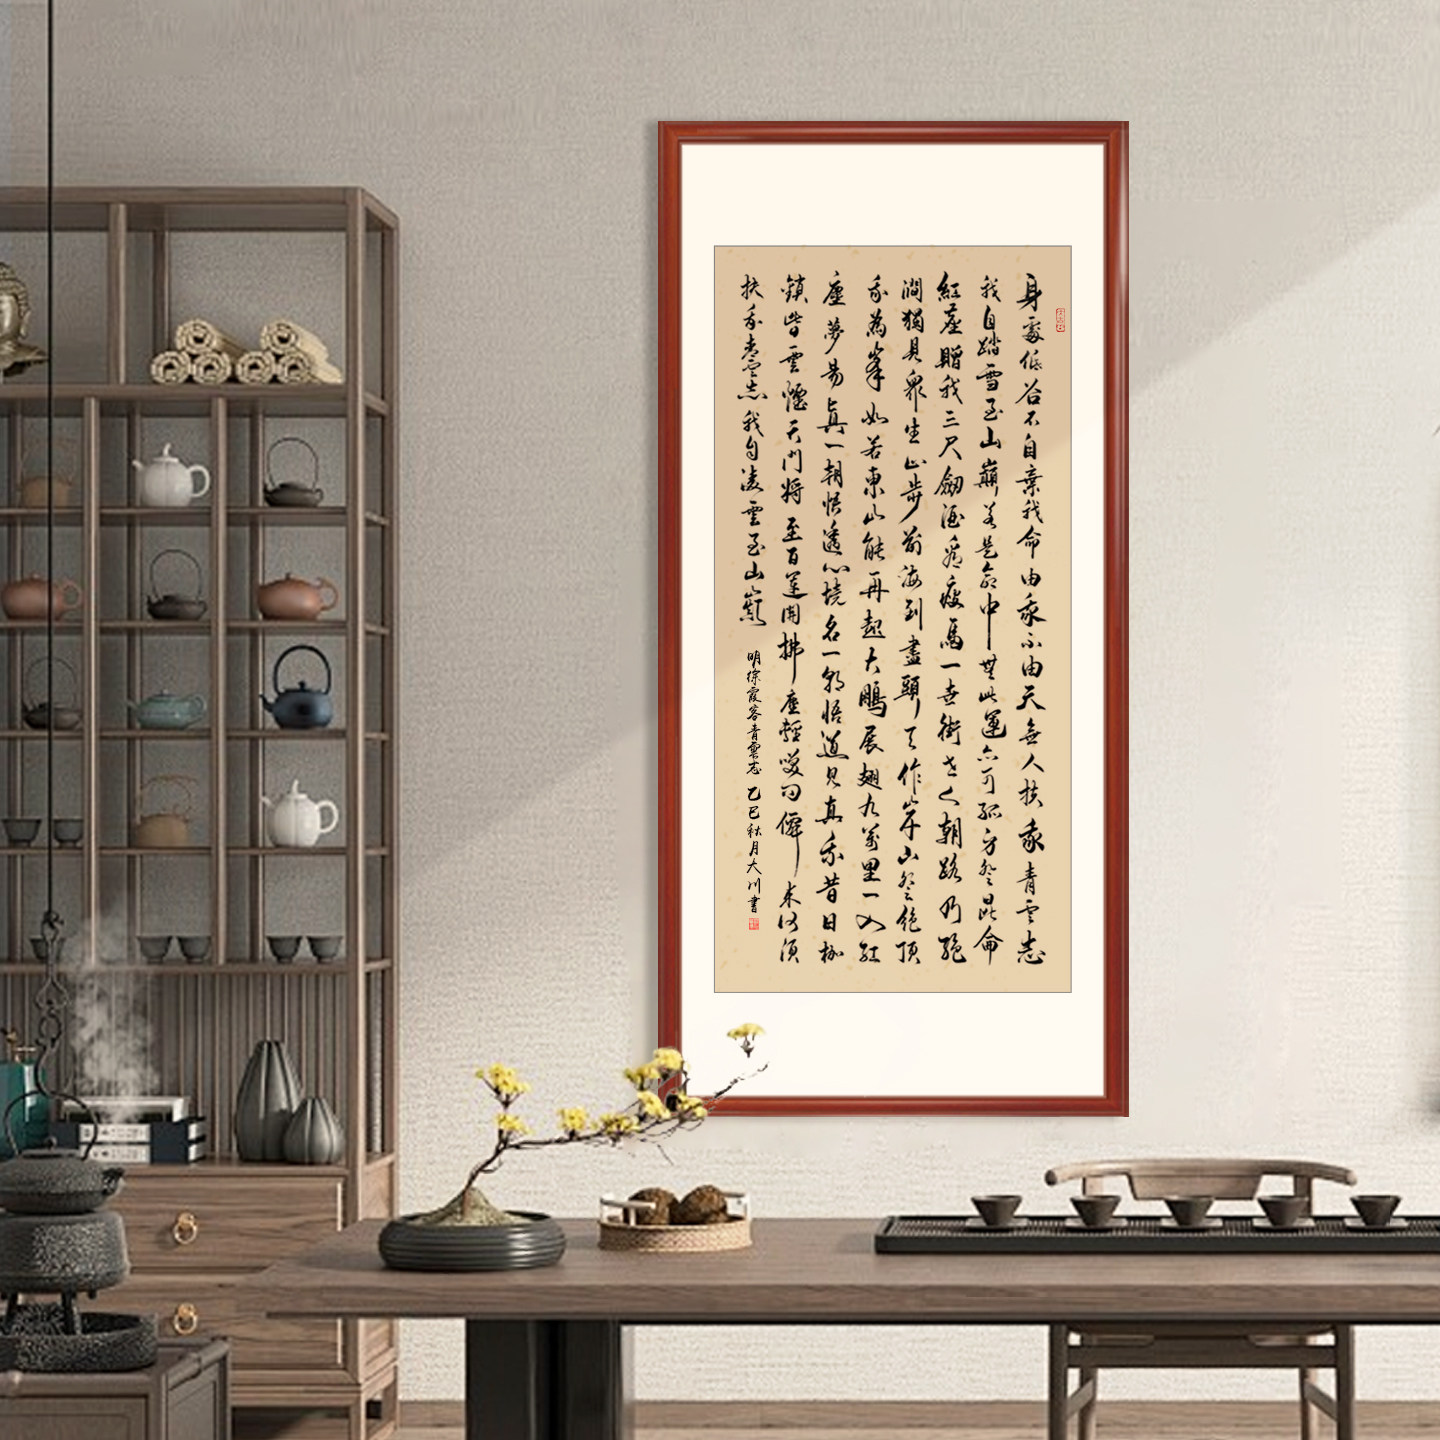 身處低谷不自棄我命由我不由天無人扶我青雲志
我自踏雪至山巔若是命中無此運亦可孤身登昆侖
紅塵贈我三尺劍酒濁瘦馬一壺街世人朝路乃絕
澗獨見眾生止步前海到盡頭天作岸山登絕頂
我為峯如若東山能再起大鵬展翅九萬里一入紅
塵夢易真一朝悟透心境名一朝悟道見真我昔日枷
鎖皆雲煙天門將至百蓮開拂塵輕嘆問僊來何須
扶我青雲志我自凌雲至山巔
明徐霞客青雲志 乙巳秋月大川書